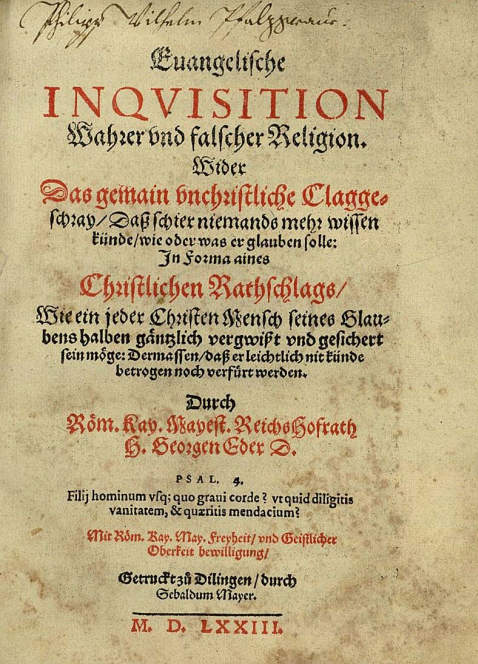 Philipp Wilhelm
Euangelische
INQVISITION
Wahrer vnd falscher Religion.
Wider
Das gemain vnchristliche Clagge-
schray/ Daß schier niemands mehr wissen
künde/ wie oder was er glauben solle:
In Forma aines
Christlichen Rathschlags/
Wie ein jeder Christen Mensch seines Glau-
bens halben gäntzlich vergwißt vnd gesichert
sein möge: Dermassen/ daß er leichtlich nit künde
betrogen noch verfürt werden.
Durch
Röm. Kay. Mayest. ReichsHofrath
H. Georgen Eder D.
PSAL. 4.
Filij hominum vsq; quo graui corde? vt quid diligitis
vanitatem, & quæritis mendacium?
Mit Röm. Kay. May. Freyheit/ vnd Geistlicher
Oberkeit bewilligung/
Getruckt zů Dilingen/ durch
Sebaldum Mayer.
M. D. LXXIII.